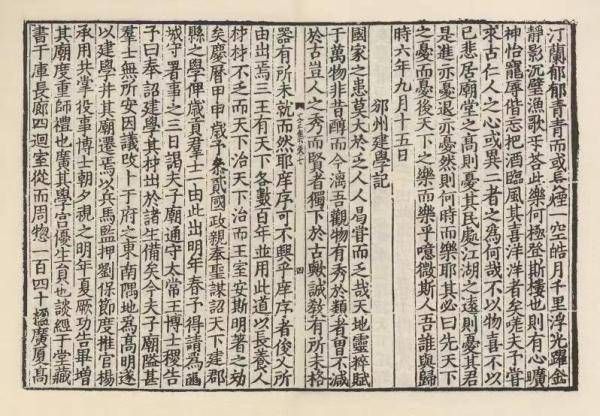 汀蘭郁郁青青而或長煙一空皓月千里浮光躍金
靜影沉璧漁歌荅此樂何極登斯樓也則有心曠
神怡寵辱偕忘把酒臨風其喜洋洋者矣嗟夫予嘗
求古仁人之心或異二者之為何哉不以物喜不以
已悲居廟堂之高則憂其民處江湖之遠則憂其君
是進亦憂退亦憂然則何時而樂耶其必曰先天下
之憂而憂後天下之樂而樂乎噫微斯人吾誰與歸
時六年九月十五日
邠州建學記
國家之患莫大於乏人人曷嘗而乏哉天地靈粹賦
于萬物非昔醇而今漓吾觀物有秀於類者曾不減
於古豈人之秀而賢者獨下於古歟誠教有所未格
四
器有所未就而然耶庠序可不興乎庠序者俊乂所
由出焉三王有天下各數百年並用此道以長養人
材材不乏而天下治天下治而王室安斯明著之効
矣慶曆甲申歲予參貳國政親奉聖謀詔天下建郡
縣之學俾歲貢羣士一由此出明年春予得請為豳
城守署事之三日謁夫子廟通守太常王博士稷告
予曰奉詔建學其材出於諸生備矣今夫子廟隘甚
羣士無所安因議改卜于府之東南隅地為高明遂
以建學并其廟遷焉以兵馬監押劉保節度推官楊
承用共掌役事博士朝夕視之明年夏厥功告畢增
其廟度重師禮也廣其學宮優生員也談經于堂藏
書于庫長廊四迴室從而周惣一百四十楹廣厦高